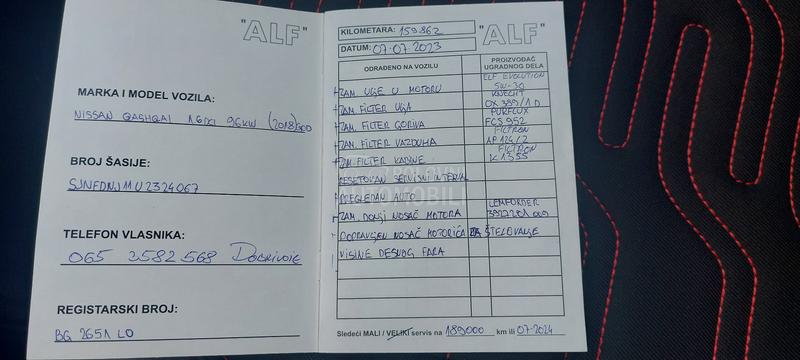 "ALF"
MARKA I MODEL VOZILA:
NISSAN QASHQAI 1.6DCI 96KW (2018)
BROJ ŠASIJE:
SJNFDNJ11U2324067
TELEFON VLASNIKA:
065 2582568 Dobrivoje
REGISTARSKI BROJ:
BG 2651 LO
KILOMETARA: 159.862
DATUM: 07.07.2023
"ALF"
ODRAĐENO NA VOZILU
PROIZVOĐAČ UGRADNOG DELA
ZAM. ULJE U MOTORU ELF EVOLUTION 5W-30
ZAM. FILTER ULJA KNECHT OX 389/1D
ZAM. FILTER GORIVA PURFLUX FCS 952
ZAM. FILTER VAZDUHA FILTRON AP 124/2
ZAM. FILTER KABINE FILTRON K1355
RESETOVAN SERVISNI INTERVAL
PREGLEDAN AUTO
ZAM. DONJI NOSAČ MOTORA LEMFORDER
POPRAVLJEN NOSAČ MOTORIĆA ZA ŠTELOVANJE
VISINE DESNOG FARA
Sledeći MALI / VELIKI servis na 189000 km ili 07-2024